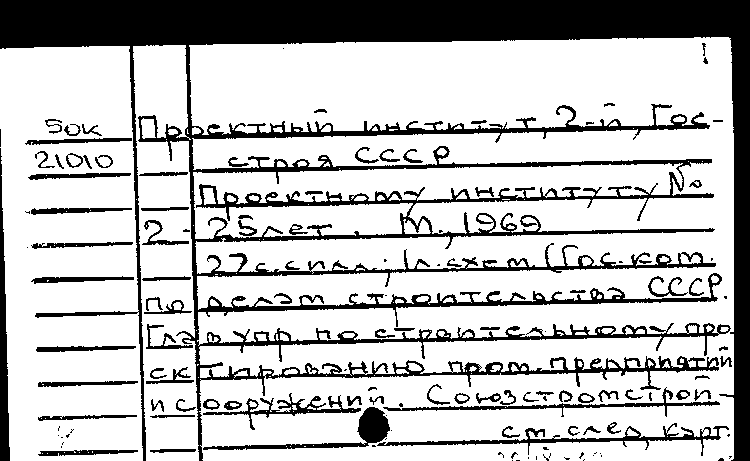 1
50к Проектный институт, 2-й, Гос-
21010 строя СССР
Проектному институту №
2 - 25 лет. М., 1969
27 с. с илл.; 1 л. схем. (Гос. ком.
по делам строительства СССР.
Глав упр. по строительному про
ектированию пром. предприятий
и сооружений. Союзстромстрой-
см. след. карт.